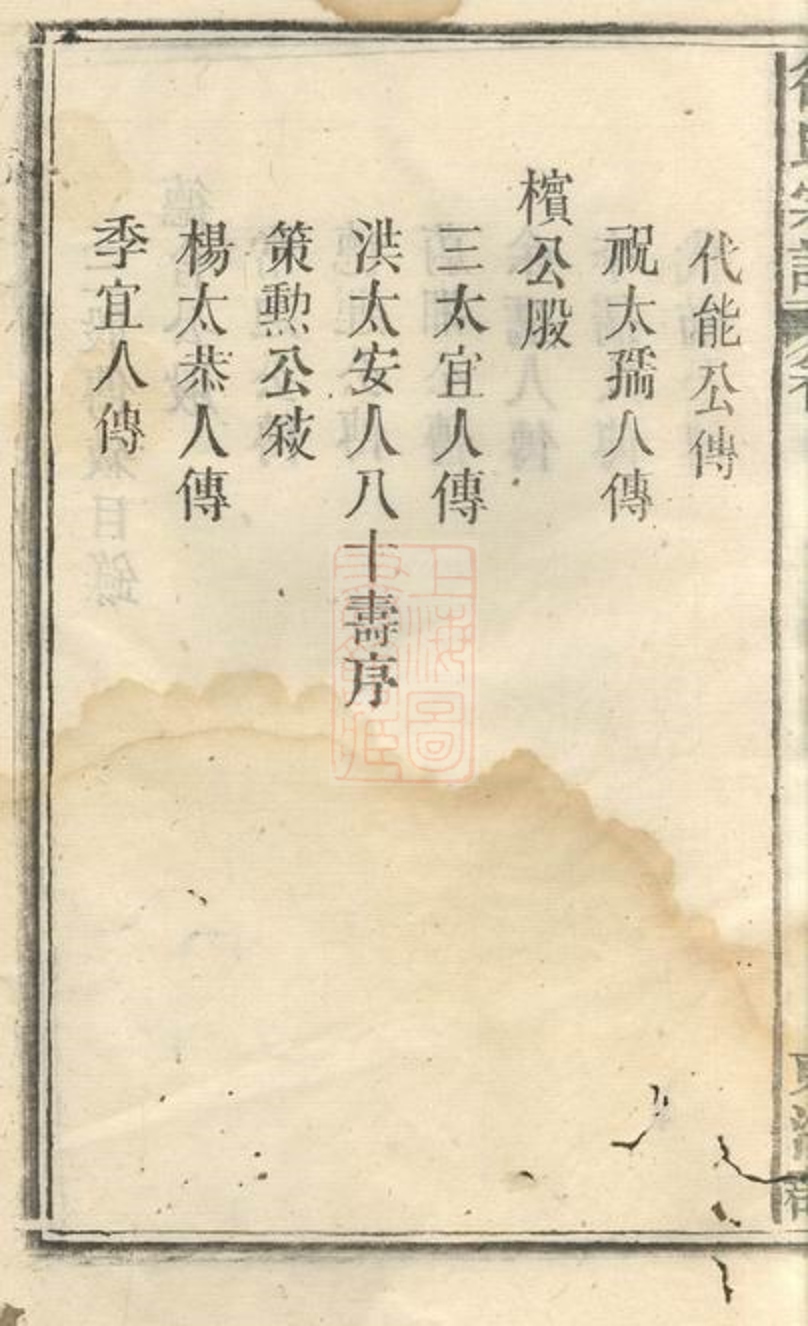 代能公傳
祝太孺人傳
檳公股
三太宜人傳
洪太安人八十壽序
策勲公敍
楊太恭人傳
季宜人傳
上海圖